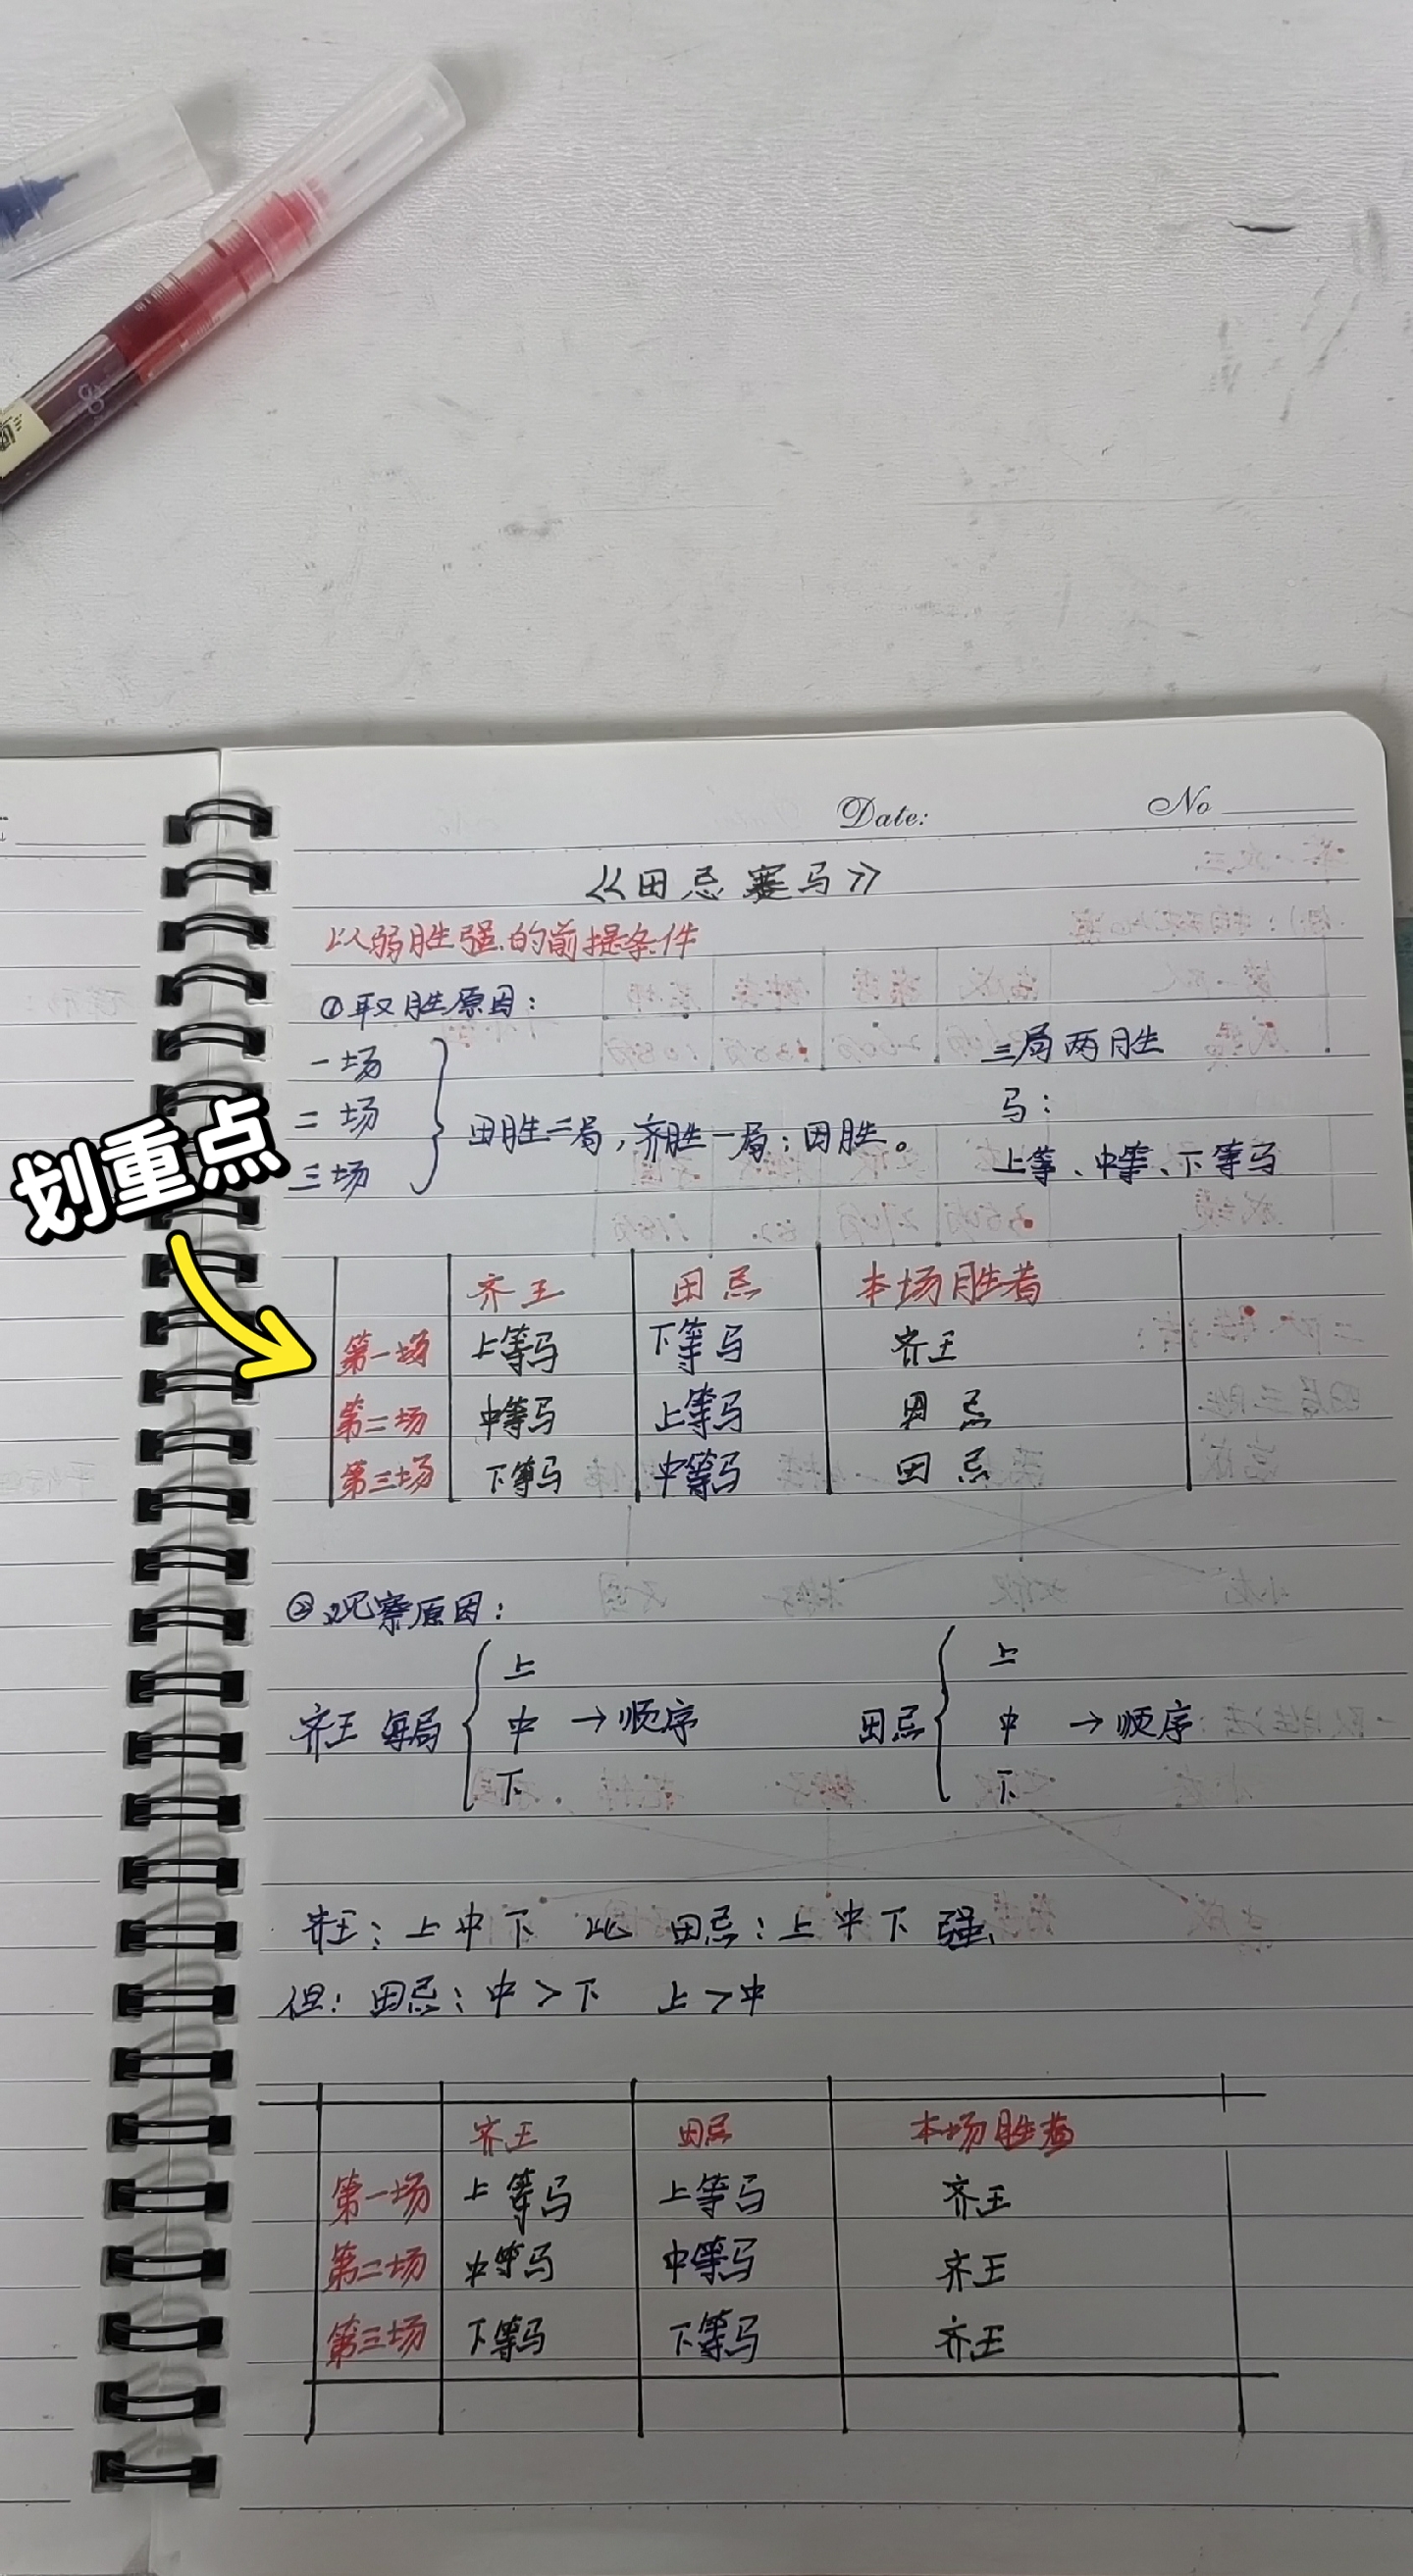 Date: No
《田忌赛马》
以弱胜强的前提条件
①取胜原因：
一场
二场
三场
田胜二局，齐胜一局：田胜。
三局两胜
马：
上等、中等、下等马
划重点
齐王 田忌 本场胜者
第一场 上等马 下等马 齐王
第二场 中等马 上等马 田忌
第三场 下等马 中等马 田忌
②观察原因：
齐王 每局 上 中 下 → 顺序
田忌 上 中 下 → 顺序
齐王：上中下 比 田忌：上中下 强
但：田忌：中＞下 上＞中
齐王 田忌 本场胜者
第一场 上等马 上等马 齐王
第二场 中等马 中等马 齐王
第三场 下等马 下等马 齐王